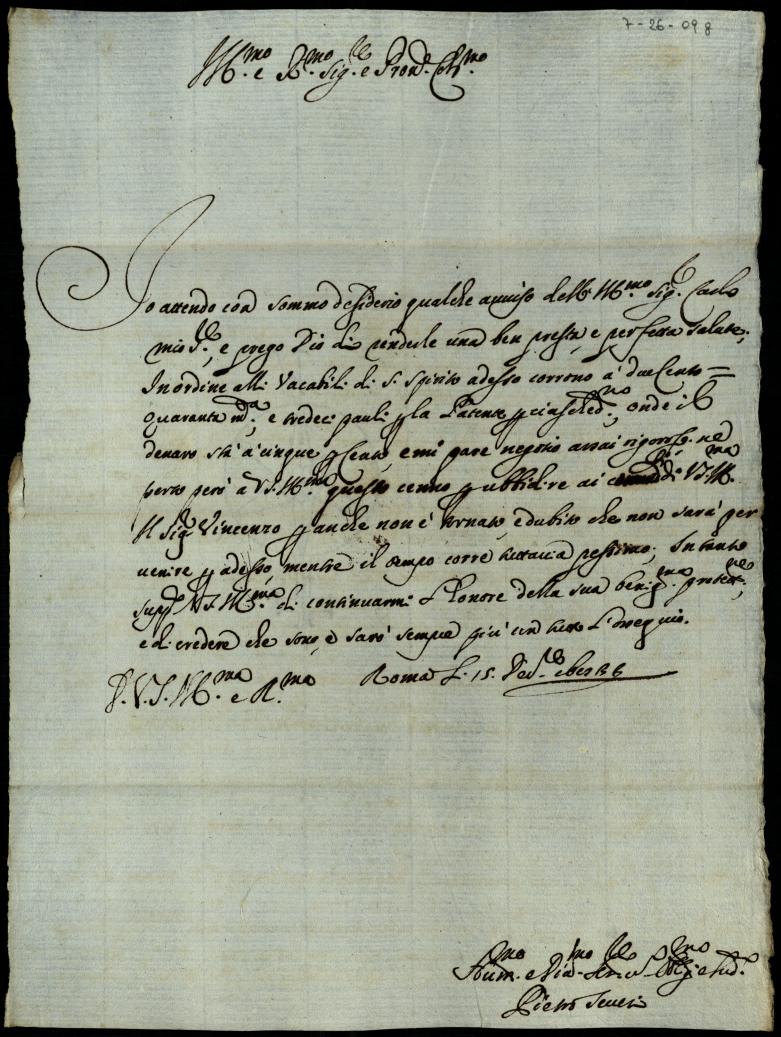 7-26-098
Ill.mo e R.mo Sig.re e Pron. Col.mo
Io attendo con sommo desiderio qualche auuiso dell' Ill.mo Sig.re Carlo
mio Sig.re, e prego Dio di renderle una ben presta, e perfetta salute;
In ordine alli Vacabili di S. Spirito adesso corrono à due Cento =
quaranta m.ta, e tredeci pauli p la Patente p ciasched.no, onde il
denaro stà à cinque p Cento, e mi pare negotio assai rigoroso. ne
porto però à V.S. Ill.ma questo cenno p ubbidire ai di V.S. Ill.ma
Il Sig.re Vincenzo p anche non è tornato, e dubito che non sarà per
uenire p adesso, mentre il tempo corre tuttauia pessimo; In tanto
supp.co V.S. Ill.ma di continuarmi l'honore della sua benig.ma protett.ne,
e di credere che sono, e sarò sempre più con tutto l'ossequio.
D. V.S. Ill.ma e R.ma Roma li 15.
Hum.mo e Diu.mo Ser.re Oblig.mo
Pietro